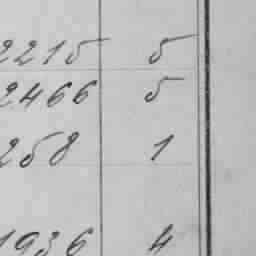 2215 5
2466 5
258 1
1936 4